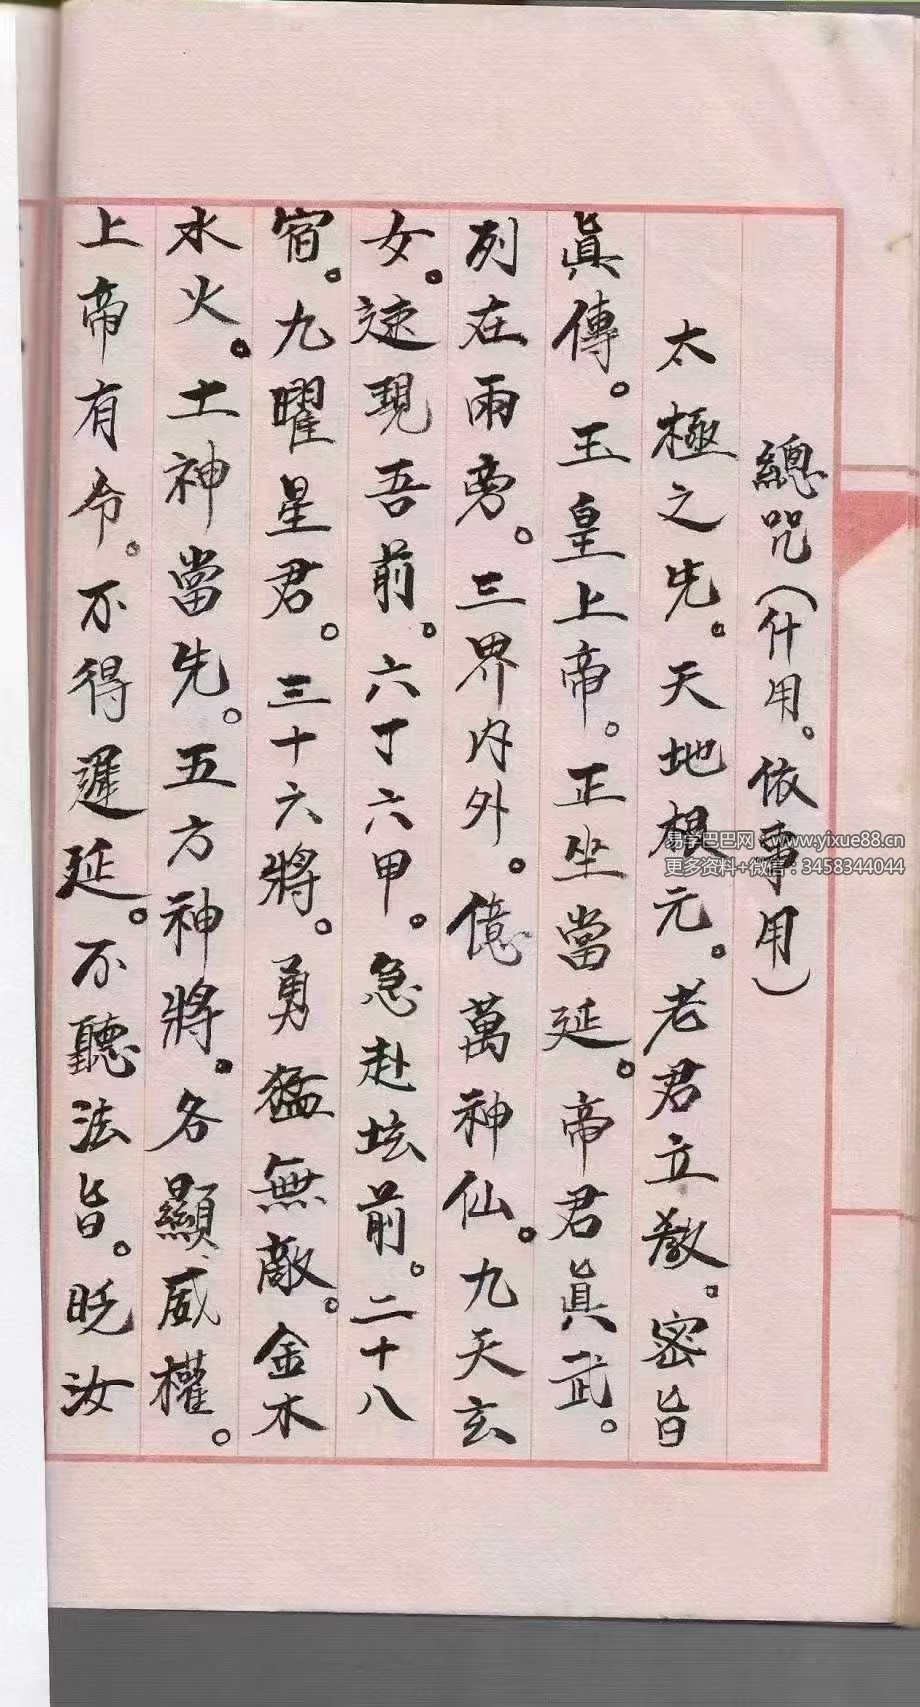 總咒（什用。依事用）
太極之先。天地根元。老君立教。密旨
眞傳。玉皇上帝。正坐當延。帝君眞武。
列在兩旁。三界內外。億萬神仙。九天玄
女。速現吾前。六丁六甲。急赴坛前。二十八
宿。九曜星君。三十六將。勇猛無敵。金木
水火。土神當先。五方神將。各顯威權。
上帝有令。不得遲延。不聽法旨。貶汝
易学巴巴网：www.yixue88.cn
更多资料+微信：3458344044